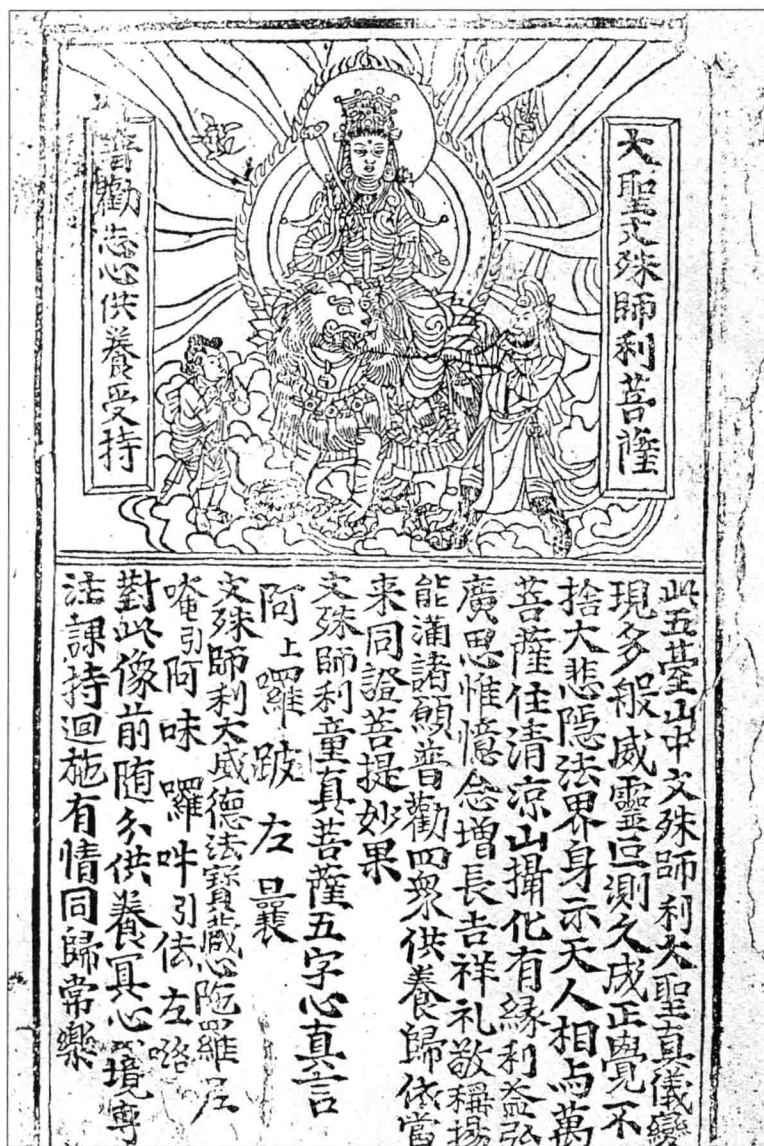 大聖文殊師利菩薩
普勸志心供養受持
此五臺山中文殊師利大聖真儀變
現多般威靈叵測久成正覺不
捨大悲隱法界身示天人相与萬
菩薩住清涼山攝化有緣利益弘
廣思惟憶念增長吉祥礼敬稱揚
能滿諸願普勸四衆供養歸依當
来同證菩提妙果
文殊師利童真菩薩五字心真言
阿上囉跛左曩
文殊師利大威德法寶藏心陁羅尼
唵引阿味囉吽引佉左㗶
對此像前随分供養冥心一境專
注課持迴施有情同歸常樂